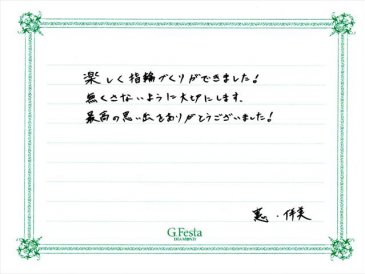 楽しく指輪づくりができました!
無くさないように大切にします。
最高の思い出をありがとうございました!
恵・伴美
G.Festa
DIAMOND